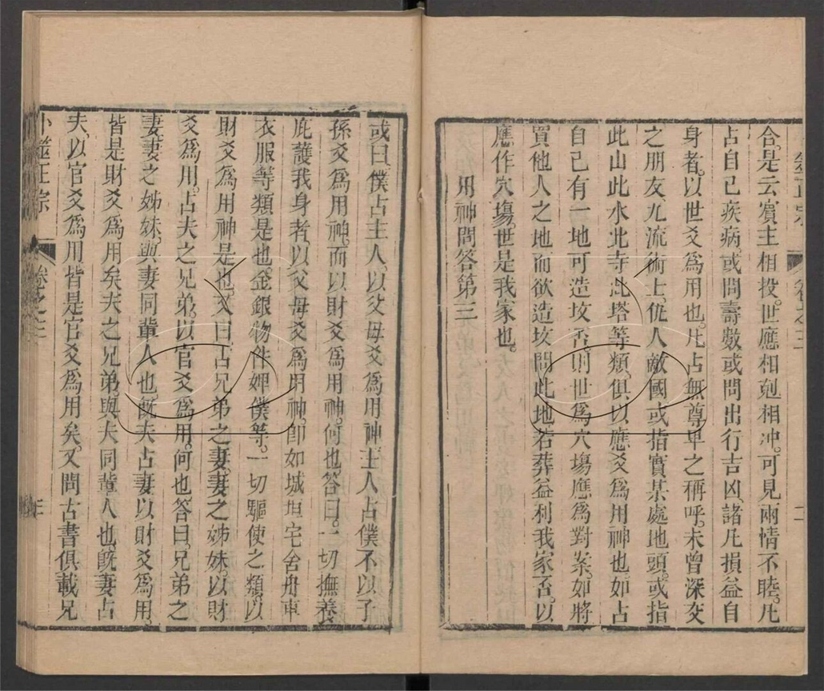 合。是云賓主相投。世應相剋相冲。可見兩情不睦。凡
占自己疾病或問壽數或問出行吉凶。諸凡損益自
身者。以世爻為用也。凡占無尊卑之稱呼。未曾深交
之朋友。九流術士。仇人敵國。或指實某處地頭。或指
此山此水此寺此塔等類。俱以應爻為用神也。如占
自己有一地可造坟否。則世為穴塲。應為對案。如將
買他人之地而欲造坟。問此地若葬益利我家否。以
應作穴塲世是我家也。
用神問答第三
或曰。僕占主人。以父母爻為用神。主人占僕不以子
孫爻為用神。而以財爻為用神。何也。答曰。一切撫養
庇護我身者。以父母爻為用神。即如城垣宅舍舟車
衣服等類是也。金銀物件婢僕等。一切驅使之類。以
財爻為用神是也。又曰。占兄弟之妻。妻之姊妹以財
爻為用。占夫之兄弟。以官爻為用。何也。答曰。兄弟之
妻。妻之姊妹。與妻同輩人也。既夫占妻以財爻為用。
皆是財爻為用矣。夫之兄弟與夫同輩人也。既妻占
夫。以官爻為用。皆是官爻為用矣。又問古書俱載兄
卜筮正宗
卷之三
三